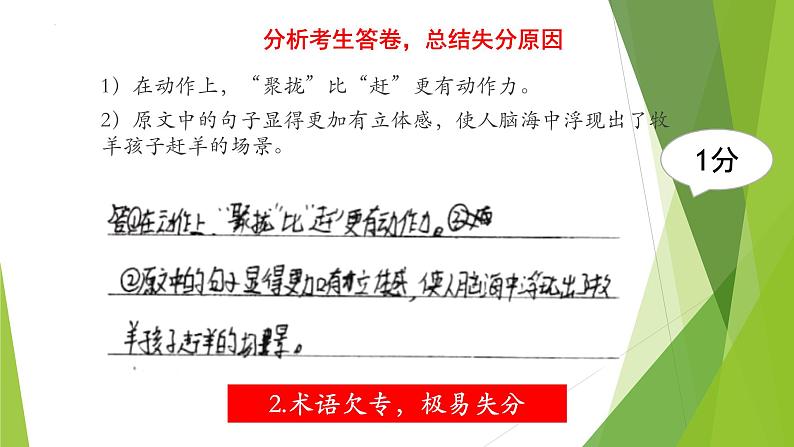 分析考生答卷，总结失分原因
1）在动作上，“聚拢”比“赶”更有动作力。
2）原文中的句子显得更加有立体感，使人脑海中浮现出了牧
羊孩子赶羊的场景。
1分
答①在动作上，“聚拢”比“赶”更有动作力。
②原文中的句子显得更加有立体感，使人脑海中浮现出了牧
羊孩子赶羊的场景。
2.术语欠专，极易失分